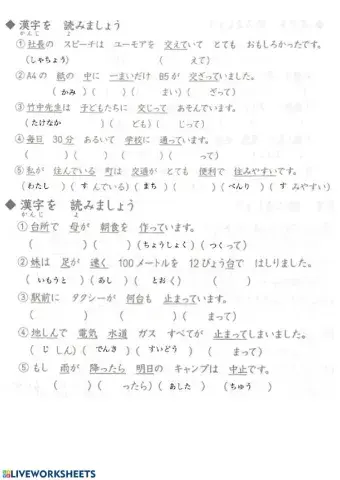 ◆ 漢字を 読みましょう
かんじ よ
①社長の スピーチは ユーモアを 交えていて とても おもしろかったです。
(しゃちょう) ( えて)
②A4の 紙の 中に 一まいだけ B5が 交ざっていました。
( かみ )( )( まい)( ざって)
③竹中先生は 子どもたちに 交じって あそんでいます。
(たけなか )( ども)( じって)
④毎日 30分 あるいて 学校に 通っています。
( )( )( )( って)
⑤私が 住んでいる 町は 交通が とても 便利で 住みやすいです。
(わたし )( す んでいる)( まち )( )( べんり )( す みやすい)
◆ 漢字を 読みましょう
かんじ よ
①台所で 母が 朝食を 作っています。
( )( )(ちょうしょく)( つくって)
②妹は 足が 速く 100メートルを 12びょう台で はしりました。
( いもうと )( あし )( とおく)( )
③駅前に タクシーが 何台も 止まっています。
( )( )( まって)
④地しんで 電気 水道 ガス すべてが 止まってしまいました。
( じ しん)( でんき )( すいどう )( まって)
⑤もし 雨が 降ったら 明日の キャンプは 中止です。
( )( ったら)( あした )( ちゅう )
LIVEWORKSHEETS